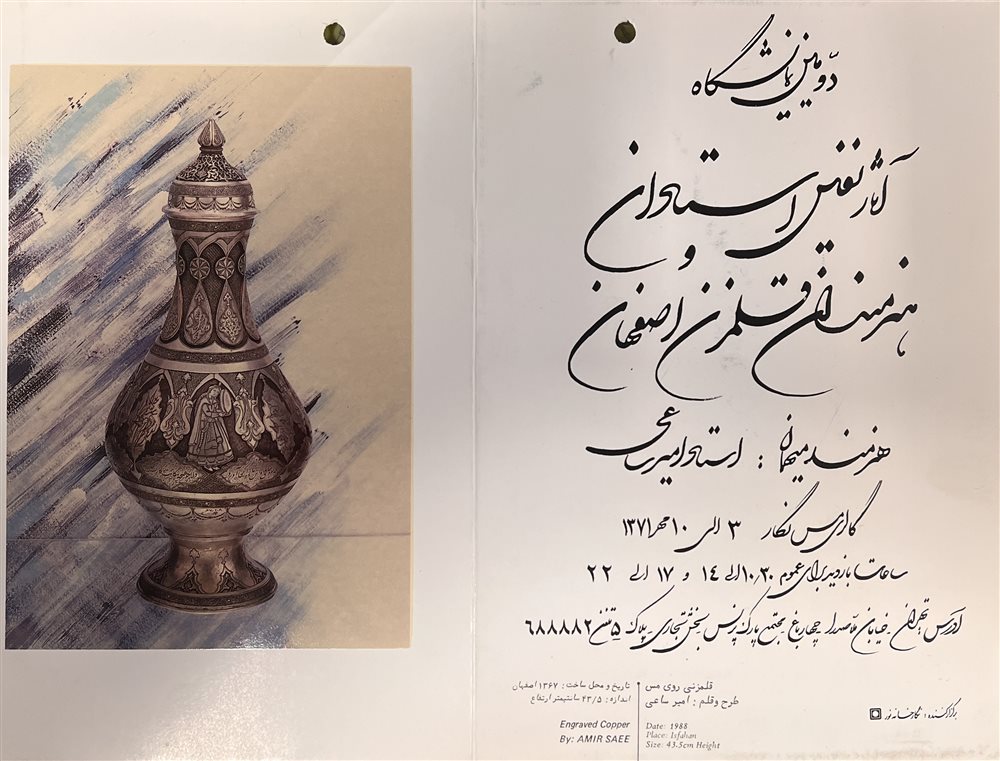 دوّمین نمایشگاه
آثار نفیس استادان
و
هنرمندان قلمزن اصفهان
هنرمند میهمان : استاد امیر ساعی
گالری مس نگار ۳ الی ۱۰ مهر ۱۳۷۱
ساعات بازدید برای عموم ۱۰٫۳۰ الی ۱۴ و ۱۷ الی ۲۲
آدرس تهران ـ خیابان ملاصدرا ـ چهارباغ ـ مجتمع پارک پرنس ـ بخش تجاری ـ پلاک ۵ تلفن ۶۸۸۸۸۲
قلمزنی روی مس
طرح و قلم : امیر ساعی
تاریخ و محل ساخت : ۱۳۶۷ اصفهان
اندازه : ۴۳/۵ سانتیمتر ارتفاع
Engraved Copper
By: AMIR SAEE
Date: 1988
Place: Isfahan
Size: 43.5cm Height
برگزارکننده : نگارخانه نور